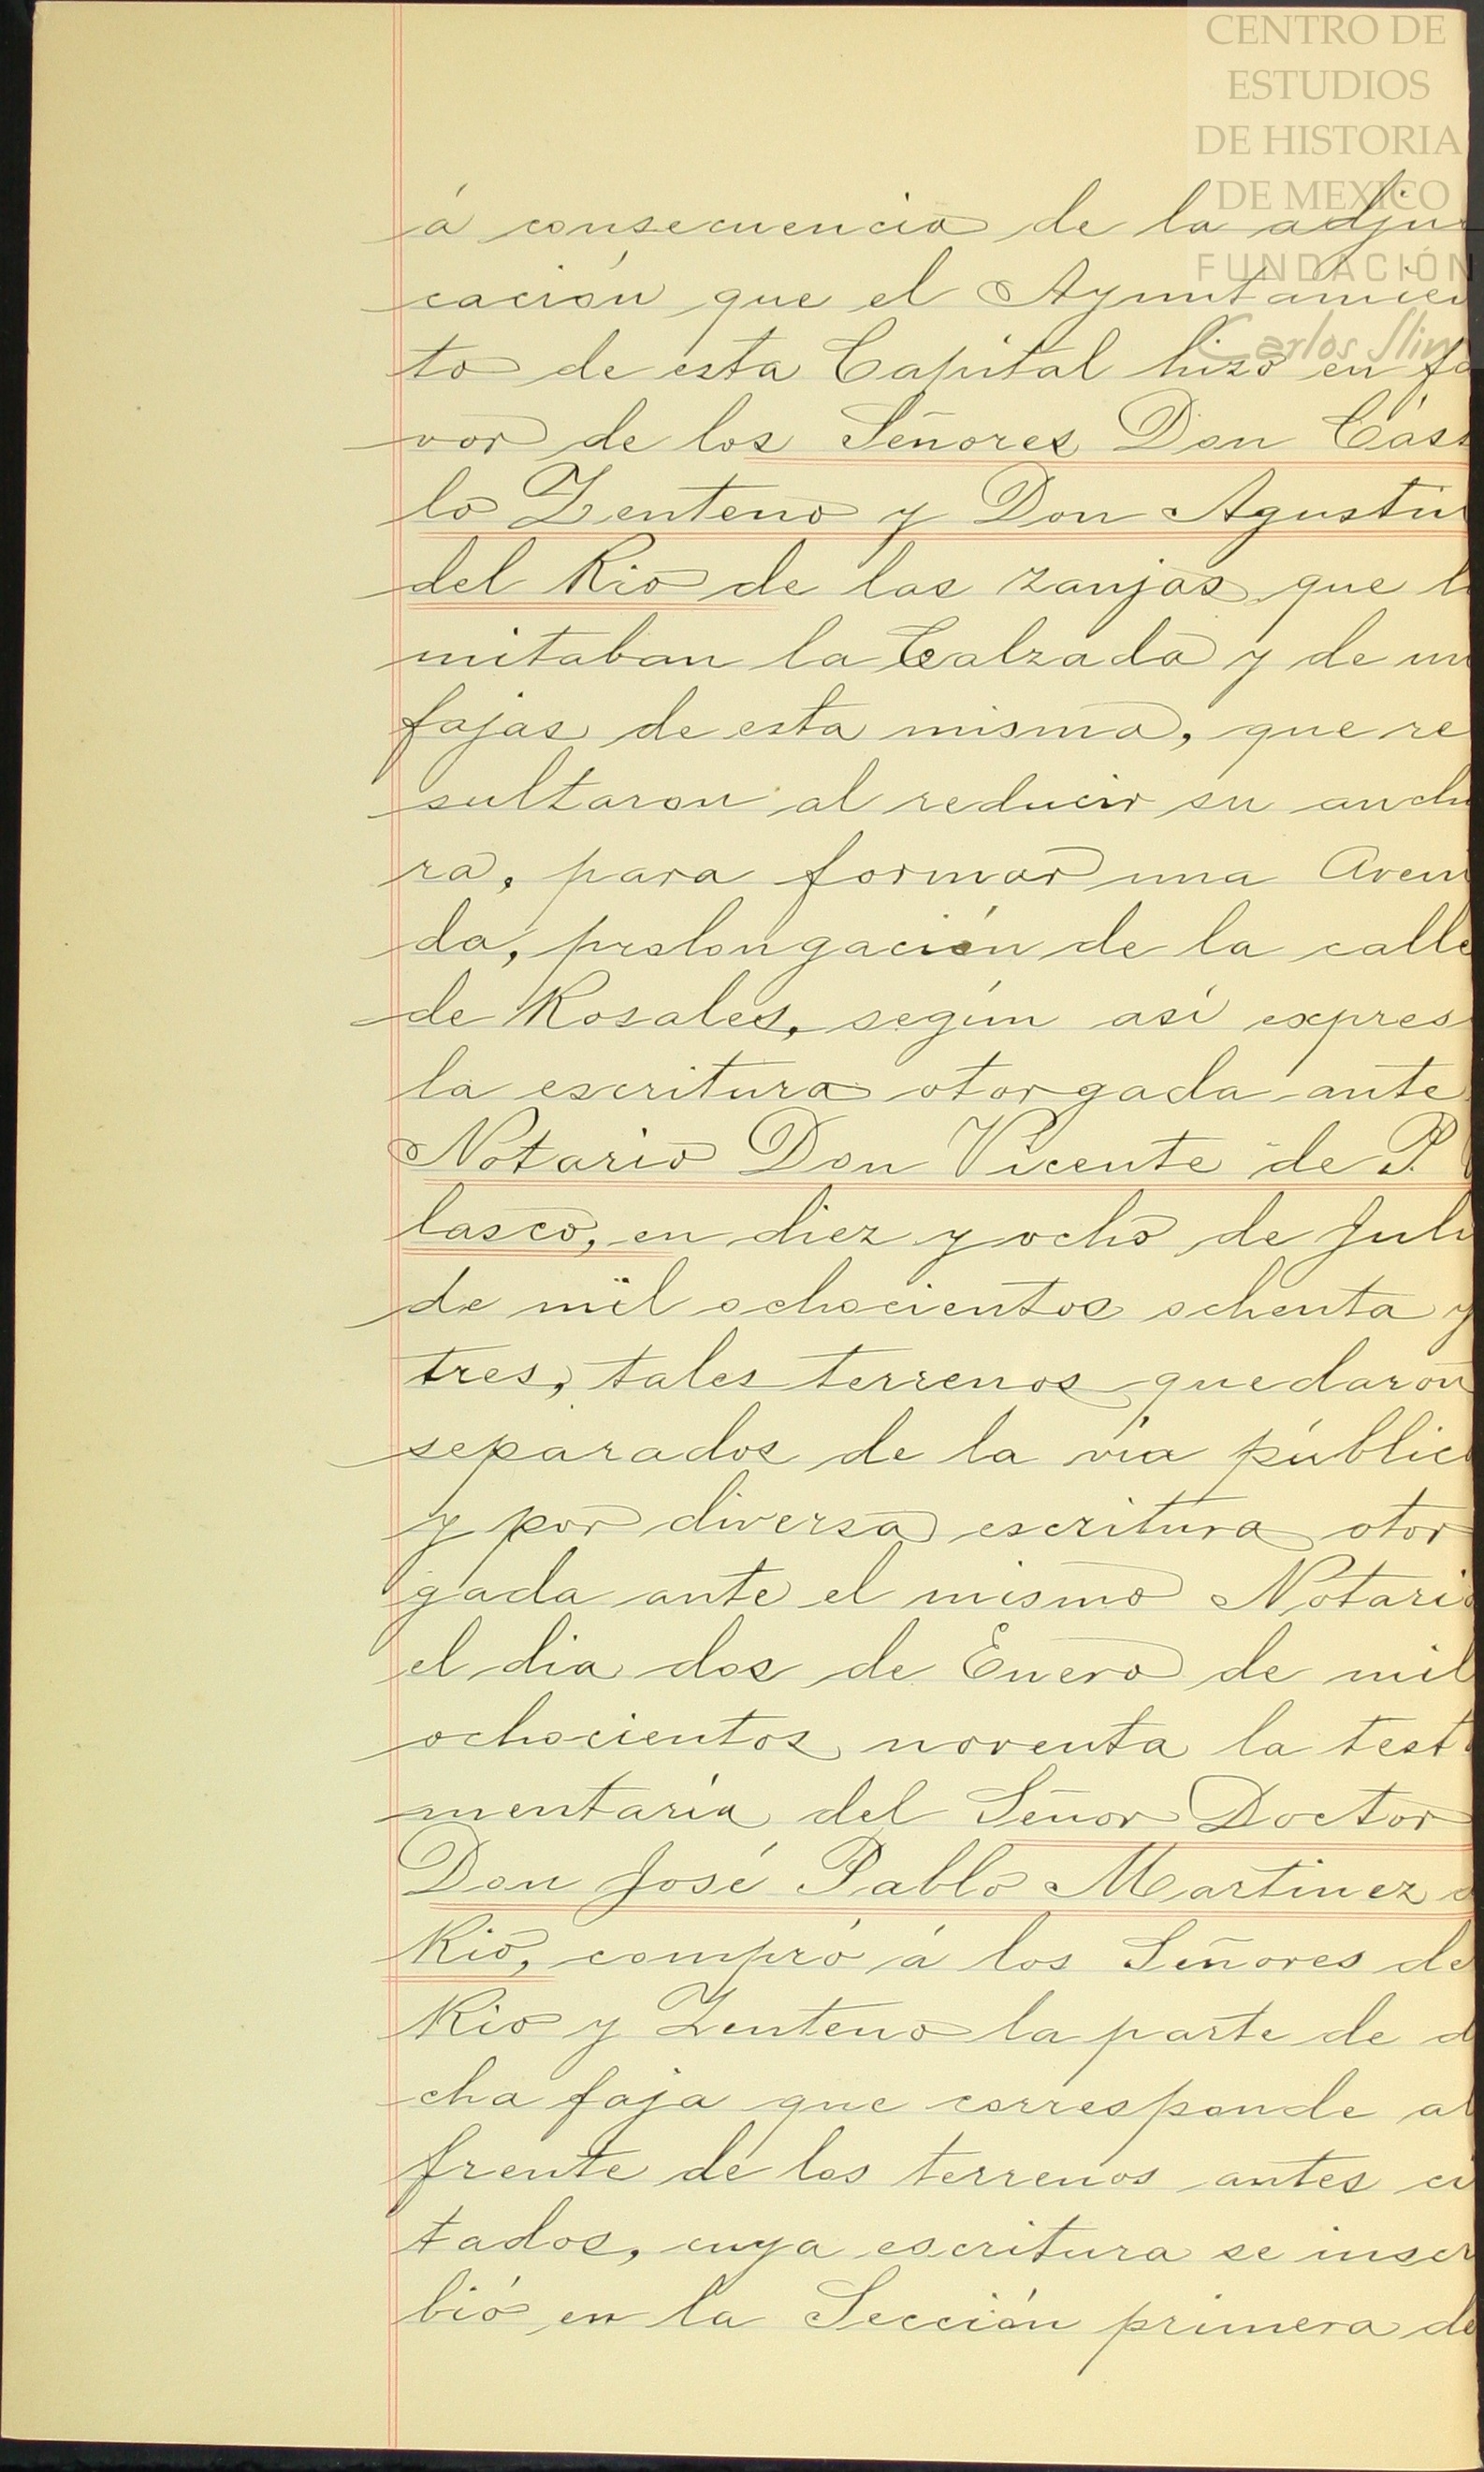 CENTRO DE
ESTUDIOS
DE HISTORIA
DE MEXICO
FUNDACIÓN
Carlos Slim
á consecuencia de la adju
cación que el Ayuntamien
to de esta Capital hizo en fa
vor de los Señores Don Cás
lo Zenteno y Don Agustin
del Rio de las zanjas que li
mitaban la Calzada y de un
fajas de esta misma, que re
sultaron al reducir su anchu
ra, para formar una Aveni
da, prolongación de la calle
de Rosales, según así expres
la escritura otorgada ante
Notario Don Vicente de P.
lasco, en diez y ocho de Juli
de mil ochocientos ochenta y
tres, tales terrenos quedaron
separados de la vía públic
y por diversa escritura otor
gada ante el mismo Notario
el dia dos de Enero de mil
ochocientos noventa la test
mentaría del Señor Doctor
Don José Pablo Martinez d
Rio, compró á los Señores de
Rio y Zenteno la parte de d
cha faja que corresponde al
frente de los terrenos antes ci
tados, cuya escritura se inscr
bió en la Sección primera de